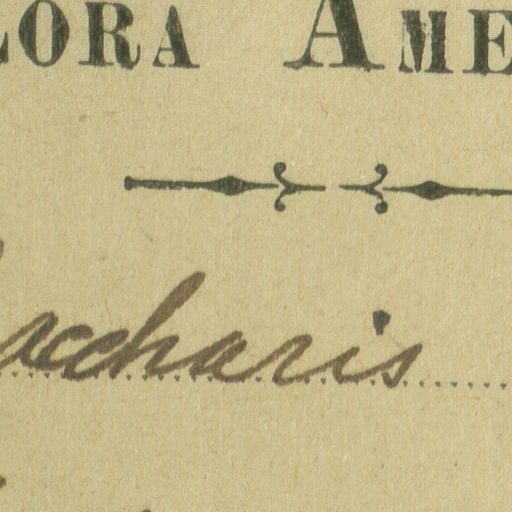 LORA AME
accharis